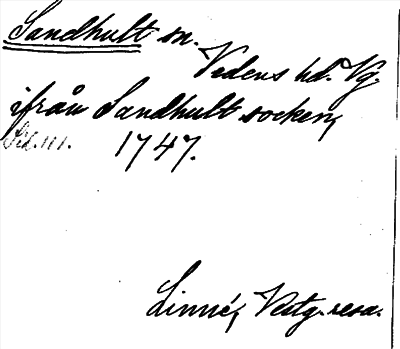 Sandhult sn.
Vedens hd. Vg.
ifrån Sandhult socken,
Sid. 111. 1747.
Linné, Vestg. resa.